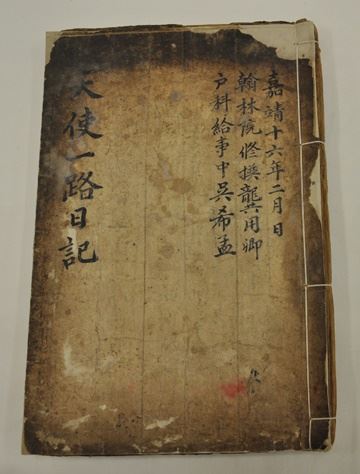 嘉靖十六年二月日
翰林院修撰龔用卿
户科給事中吳希孟
天使一路日記